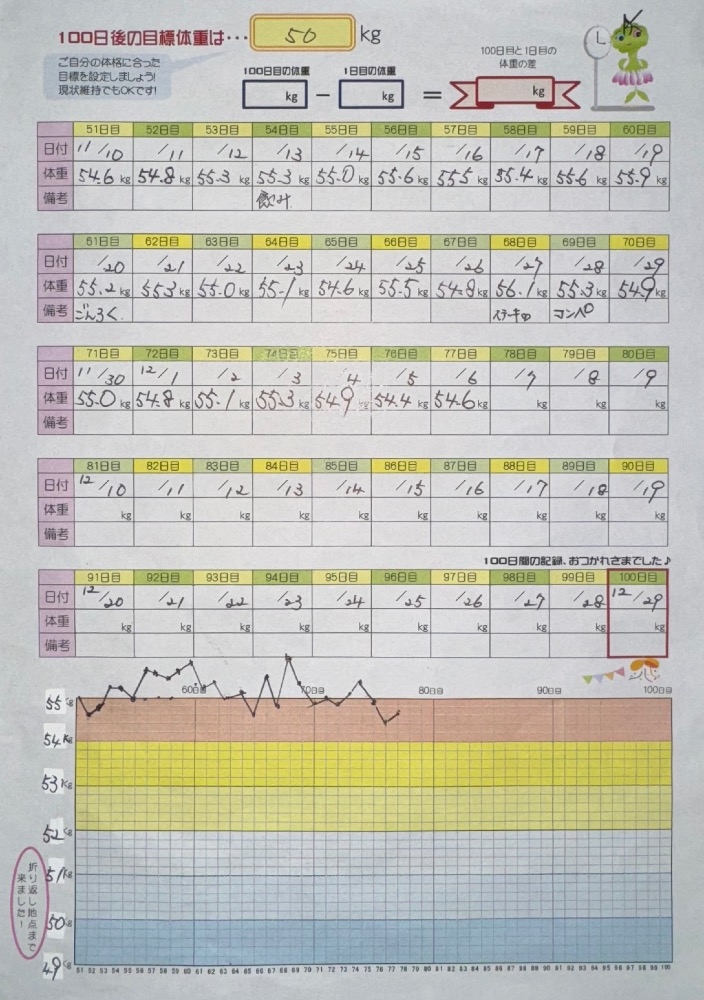 100日後の目標体重は･･･ 50 kg
ご自分の体格に合った
目標を設定しましょう!
現状維持でもOKです!
100日目の体重 kg − 1日目の体重 kg =
100日目と1日目の
体重の差
kg
51日目 52日目 53日目 54日目 55日目 56日目 57日目 58日目 59日目 60日目
日付 11/10 /11 /12 /13 /14 /15 /16 /17 /18 /19
体重 54.6 kg 54.8 kg 55.3 kg 55.3 kg 55.0 kg 55.6 kg 55.5 kg 55.4 kg 55.6 kg 55.9 kg
備考 飲み
61日目 62日目 63日目 64日目 65日目 66日目 67日目 68日目 69日目 70日目
日付 /20 /21 /22 /23 /24 /25 /26 /27 /28 /29
体重 55.2 kg 55.3 kg 55.0 kg 55.1 kg 54.6 kg 55.5 kg 54.8 kg 56.1 kg 55.3 kg 54.9 kg
備考 ごんろく ステーキ コンペ
71日目 72日目 73日目 74日目 75日目 76日目 77日目 78日目 79日目 80日目
日付 11/30 12/1 /2 /3 /4 /5 /6 /7 /8 /9
体重 55.0 kg 54.8 kg 55.1 kg 55.3 kg 54.9 kg 54.4 kg 54.6 kg kg kg kg
備考
81日目 82日目 83日目 84日目 85日目 86日目 87日目 88日目 89日目 90日目
日付 12/10 /11 /12 /13 /14 /15 /16 /17 /18 /19
体重 kg kg kg kg kg kg kg kg kg kg
備考
100日間の記録、おつかれさまでした♪
91日目 92日目 93日目 94日目 95日目 96日目 97日目 98日目 99日目 100日目
日付 12/20 /21 /22 /23 /24 /25 /26 /27 /28 12/29
体重 kg kg kg kg kg kg kg kg kg kg
備考
60日目 70日目 80日目 90日目 100日目
55 kg
54 kg
53 kg
52 kg
51 kg
50 kg
49 kg
折り返し地点まで
来ました!
51 52 53 54 55 56 57 58 59 60 61 62 63 64 65 66 67 68 69 70 71 72 73 74 75 76 77 78 79 80 81 82 83 84 85 86 87 88 89 90 91 92 93 94 95 96 97 98 99 100